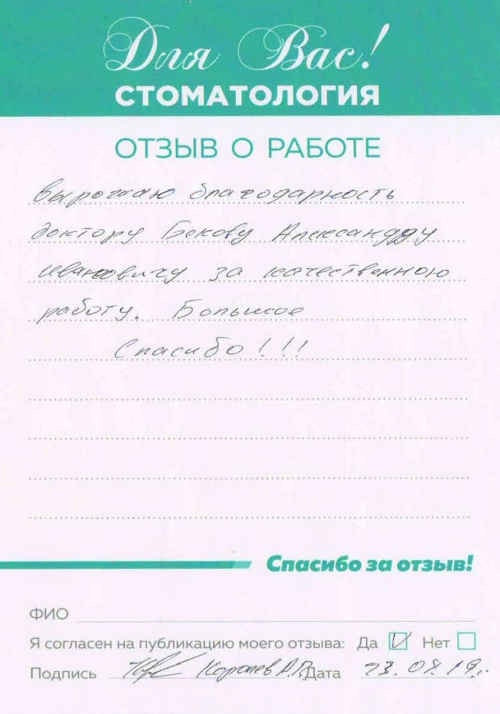 Для Вас!
СТОМАТОЛОГИЯ
ОТЗЫВ О РАБОТЕ
выражаю благодарность
доктору Бекову Александру
Ивановичу за качественную
работу. Большое
Спасибо!!!
Спасибо за отзыв!
ФИО
Я согласен на публикацию моего отзыва: Да Нет
Подпись Королев А.П. Дата 23.08.19г.